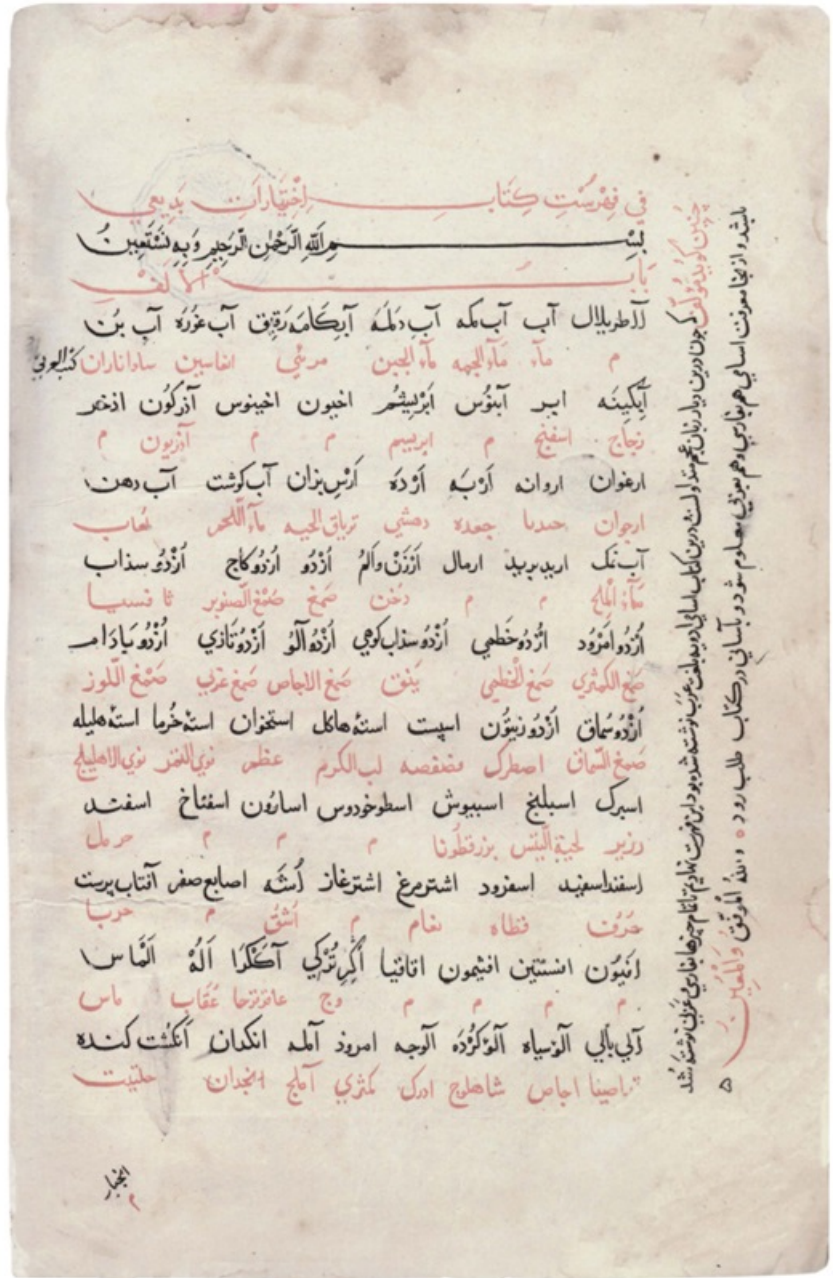 في فهرست كتاب اختيارات بديعي
بسم الله الرحمن الرحيم وبه نستعين
باب الالف
آاطریلال آب آب مکه آب دلمه آبکامه رقیق آب غوره آب بن
م ماء ماء الجبن مرئي انفاسین ساداناران
آبگینه ابر آبنوس ابریشم اخیون اخینوس آذرکون اذخر
زجاج اسفنج م ابریسم م م آذریون م
ارغوان اروانه اربه ارده ارس بزان آب کوشت آب دهن
ارجوان جعده دهشتي تریاق الحیه ماء اللحم لعاب
آب نمک اربدبرید ارمال ارزن والم ازدو ازدو کاج ازدو سذاب
ماء الملح م م دخن صمغ صمغ الصنوبر ثافسیا
ازدو امرود ازدو خطمي ازدو سذاب کوهي ازدو آلو ازدو تازي ازدو بادام
صمغ الکمثري صمغ الخطمي صمغ الاجاص صمغ عربي صمغ اللوز
ازدو سماق ازدو زیتون اسپست استه هاکل استخوان استه خرما استه هلیله
صمغ السماق اصطرک فصفصه لب الکرم عظم نوي التمر نوي الاهلیلج
اسپرک اسبلنج اسبیوش اسطوخودوس اسارون اسفناخ اسفند
زریر لحیة التیس بزرقطونا م م م حرمل
اسفند اسفید اسفرود اشترمرغ اشترغاز اشه اصابع صفر آفتاب پرست
حرف قطاه نعام م اشق م حربا
افیون افسنتین افثیمون اقاقیا اکر ترکي آکلکرا اله الماس
م م م م وج عاقرقرحا عقاب ماس
آلي بالي آلو سیاه آلو کرده آلوجه امرود آلمه انکدان انکشت کنده
قراصیا اجاص شاهلوج ادرک کمثري آملج انجدان حلتیت
انجبار
م
چنین کوید مؤلف که چون درین دیار زبان عجم متداولست و درین کتاب اسامي ادویه بلغت عرب نوشته شده بود این فهرست نمادیم تا تمام چیزها بفارسي و عربي نوشته شد
باشد و از اینجا معرفت اسامي هم بفارسي و هم بعربي معلوم شود و بآساني در کتاب طلب رود والله الموفق والمعین